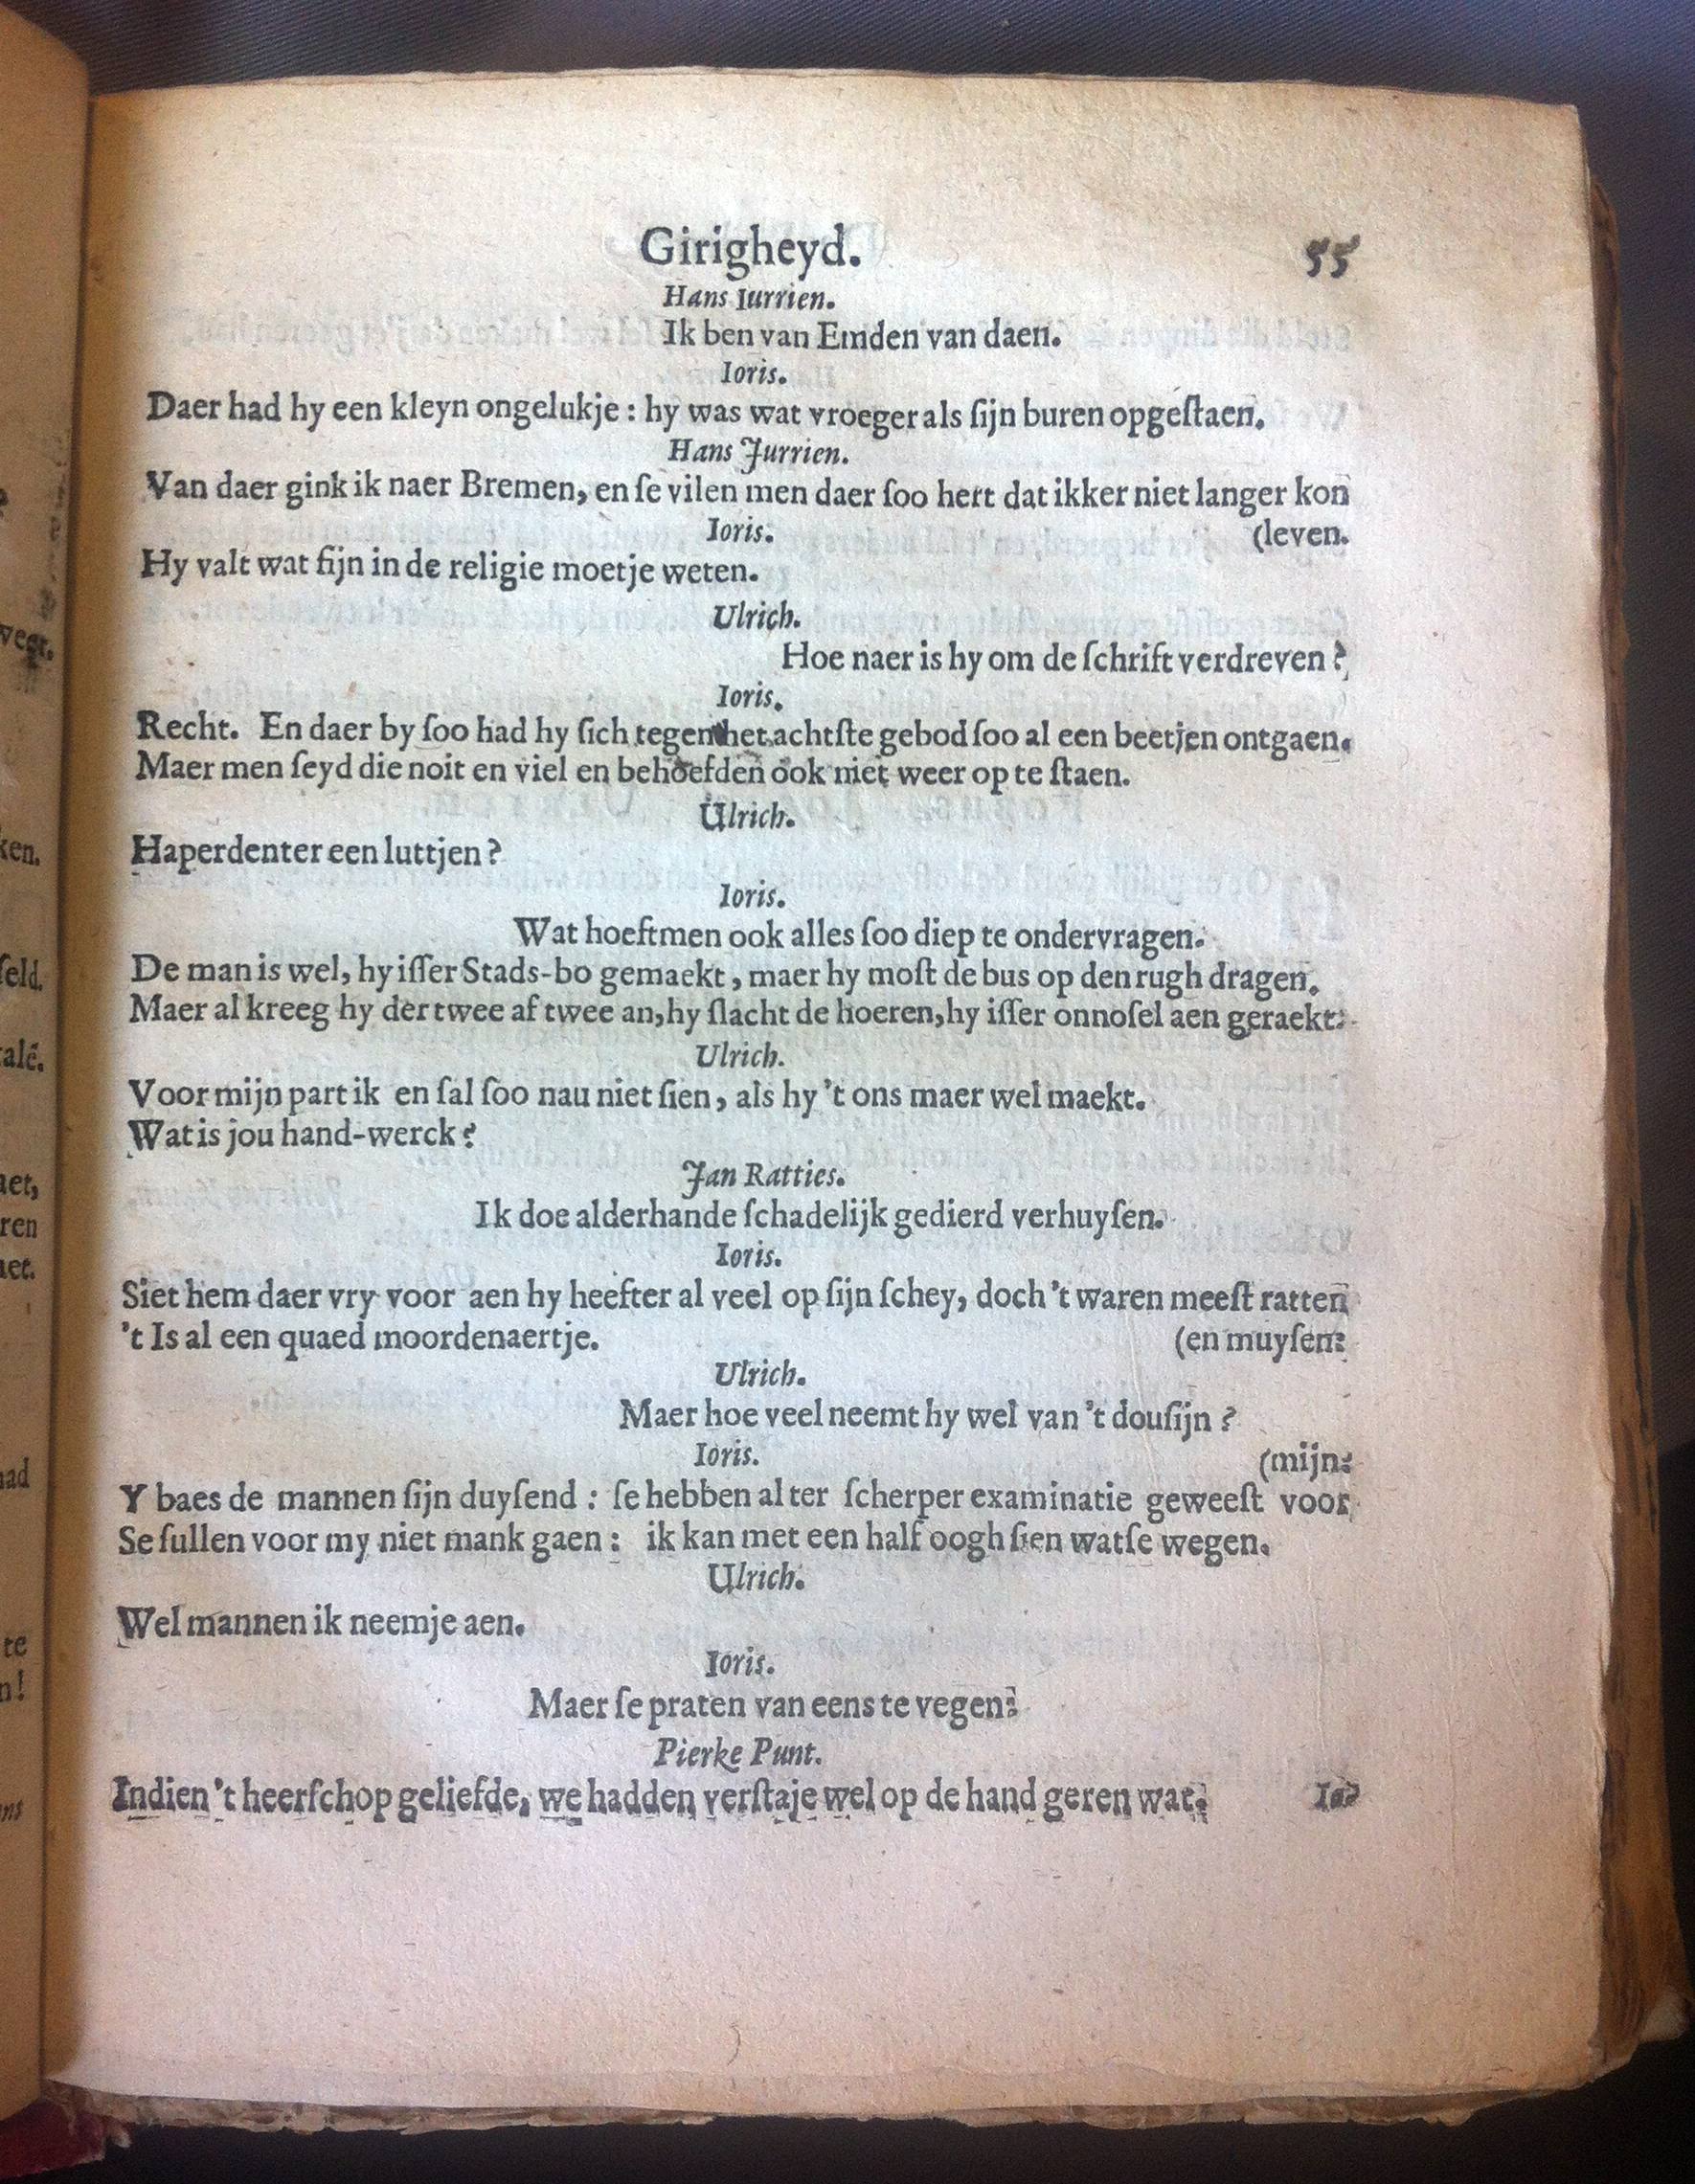 Girigheyd. 55
Hans Iurrien.
Ik ben van Emden van daen.
Ioris.
Daer had hy een kleyn ongelukje : hy was wat vroeger als ſijn buren opgeſtaen.
Hans Jurrien.
Van daer gink ik naer Bremen, en ſe vilen men daer ſoo hert dat ikker niet langer kon
Ioris. (leven.
Hy valt wat fijn in de religie moetje weten.
Ulrich.
Hoe naer is hy om de ſchrift verdreven ?
Ioris.
Recht. En daer by ſoo had hy ſich tegen het achtſte gebod ſoo al een beetjen ontgaen.
Maer men ſeyd die noit en viel en behoefden ook niet weer op te ſtaen.
Ulrich.
Haperdenter een luttjen ?
Ioris.
Wat hoeftmen ook alles ſoo diep te ondervragen.
De man is wel, hy iſſer Stads-bo gemaekt, maer hy moſt de bus op den rugh dragen.
Maer al kreeg hy der twee af twee an, hy ſlacht de hoeren, hy iſſer onnoſel aen geraekt.
Ulrich.
Voor mijn part ik en ſal ſoo nau niet ſien, als hy 't ons maer wel maekt.
Wat is jou hand-werck ?
Jan Ratties.
Ik doe alderhande ſchadelijk gedierd verhuyſen.
Ioris.
Siet hem daer vry voor aen hy heefter al veel op ſijn ſchey, doch 't waren meeſt ratten
't Is al een quaed moordenaertje. (en muyſen:
Ulrich.
Maer hoe veel neemt hy wel van 't douſijn ?
Ioris. (mijn:
Y baes de mannen ſijn duyſend : ſe hebben al ter ſcherper examinatie geweeſt voor
Se ſullen voor my niet mank gaen : ik kan met een half oogh ſien watſe wegen.
Ulrich.
Wel mannen ik neemje aen.
Ioris.
Maer ſe praten van eens te vegen:
Pierke Punt.
Indien 't heerſchop geliefde, we hadden verſtaje wel op de hand geren wat.
weer.
ken.
ſeld.
alē.
ren
ad
te
n!